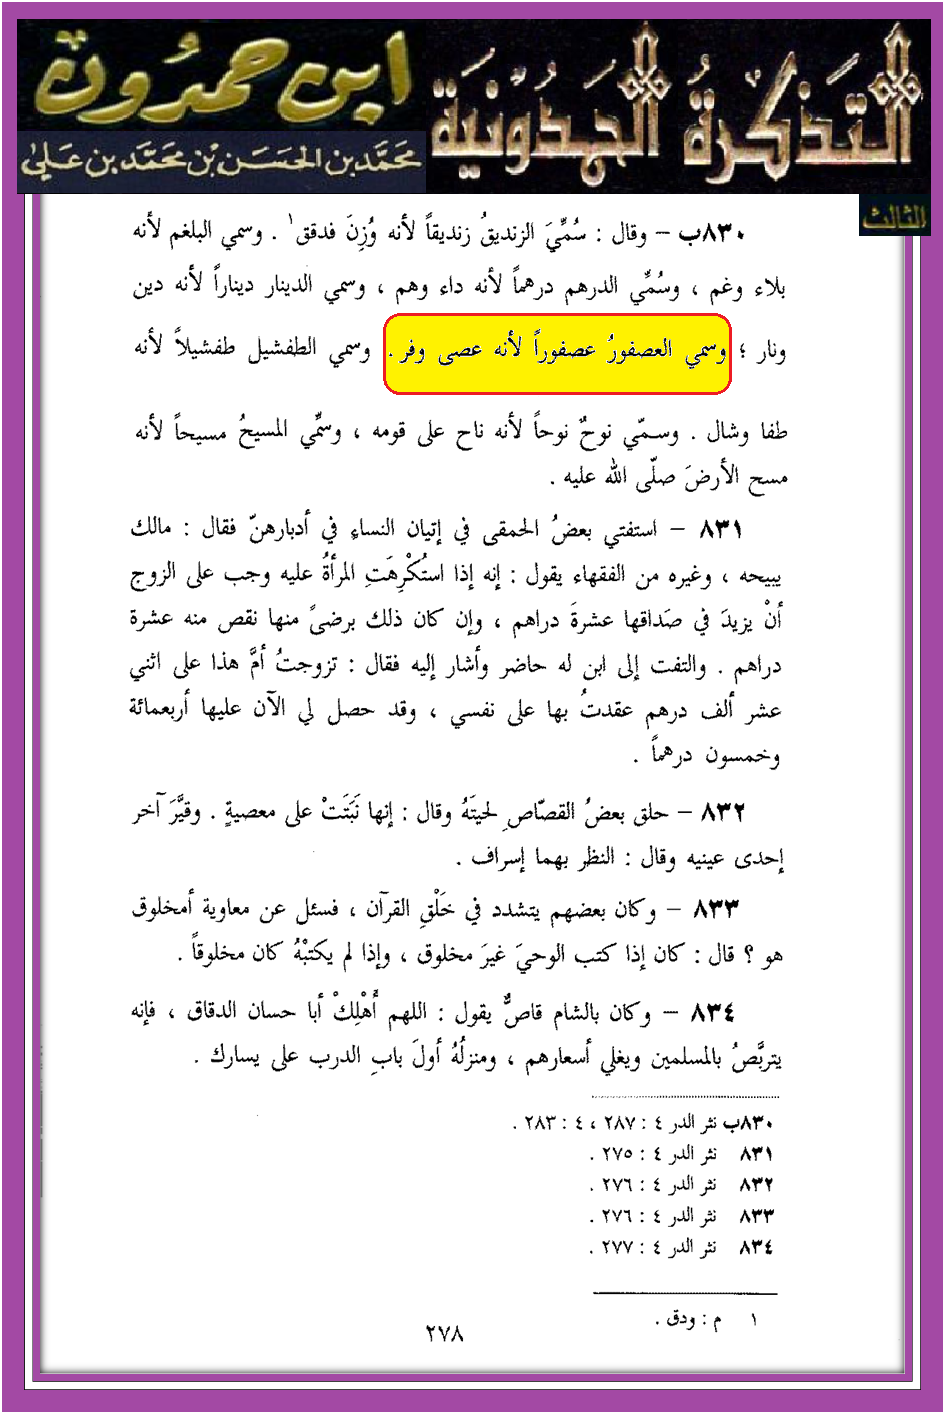 التذكرة الحمدونية
ابن حمدون
محمد بن الحسن بن محمد بن علي
الثالث
٨٣٠ب – وقال : سُمِّيَ الزنديقُ زنديقاً لأنه وُزِنَ فدقق١ . وسمي البلغم لأنه
بلاء وغم ، وسُمِّي الدرهم درهماً لأنه داء وهم ، وسمي الدينار ديناراً لأنه دين
ونار ؛ وسمي العصفورُ عصفوراً لأنه عصى وفر . وسمي الطفشيل طفشيلاً لأنه
طفا وشال . وسمّي نوحٌ نوحاً لأنه ناح على قومه ، وسمِّي المسيحُ مسيحاً لأنه
مسح الأرضَ صلّى الله عليه .
٨٣١ – استفتي بعضُ الحمقى في إتيان النساءِ في أدبارهنّ فقال : مالك
يبيحه ، وغيره من الفقهاء يقول : إنه إذا استُكْرِهَتِ المرأةُ عليه وجب على الزوج
أنْ يزيدَ في صَداقها عشرةَ دراهم ، وإن كان ذلك برضىً منها نقص منه عشرة
دراهم . والتفت إلى ابن له حاضر وأشار إليه فقال : تزوجتُ أمَّ هذا على اثني
عشر ألف درهم عقدتُ بها على نفسي ، وقد حصل لي الآن عليها أربعمائة
وخمسون درهماً .
٨٣٢ – حلق بعضُ القصّاصِ لحيتَهُ وقال : إنها نَبَتَتْ على معصيةٍ . وقيَّرَ آخر
إحدى عينيه وقال : النظر بهما إسراف .
٨٣٣ – وكان بعضهم يتشدد في خَلْقِ القرآن ، فسئل عن معاوية أمخلوق
هو ؟ قال : كان إذا كتب الوحيَ غيرَ مخلوق ، وإذا لم يكتبْهُ كان مخلوقاً .
٨٣٤ – وكان بالشام قاصٌّ يقول : اللهم أَهْلِكْ أبا حسان الدقاق ، فإنه
يتربَّصُ بالمسلمين ويغلي أسعارهم ، ومنزلُهُ أولَ بابِ الدرب على يسارك .
٨٣٠ب نثر الدر ٤ : ٢٨٧ ، ٤ : ٢٨٣ .
٨٣١ نثر الدر ٤ : ٢٧٥ .
٨٣٢ نثر الدر ٤ : ٢٧٦ .
٨٣٣ نثر الدر ٤ : ٢٧٦ .
٨٣٤ نثر الدر ٤ : ٢٧٧ .
١ م : ودق .
٢٧٨